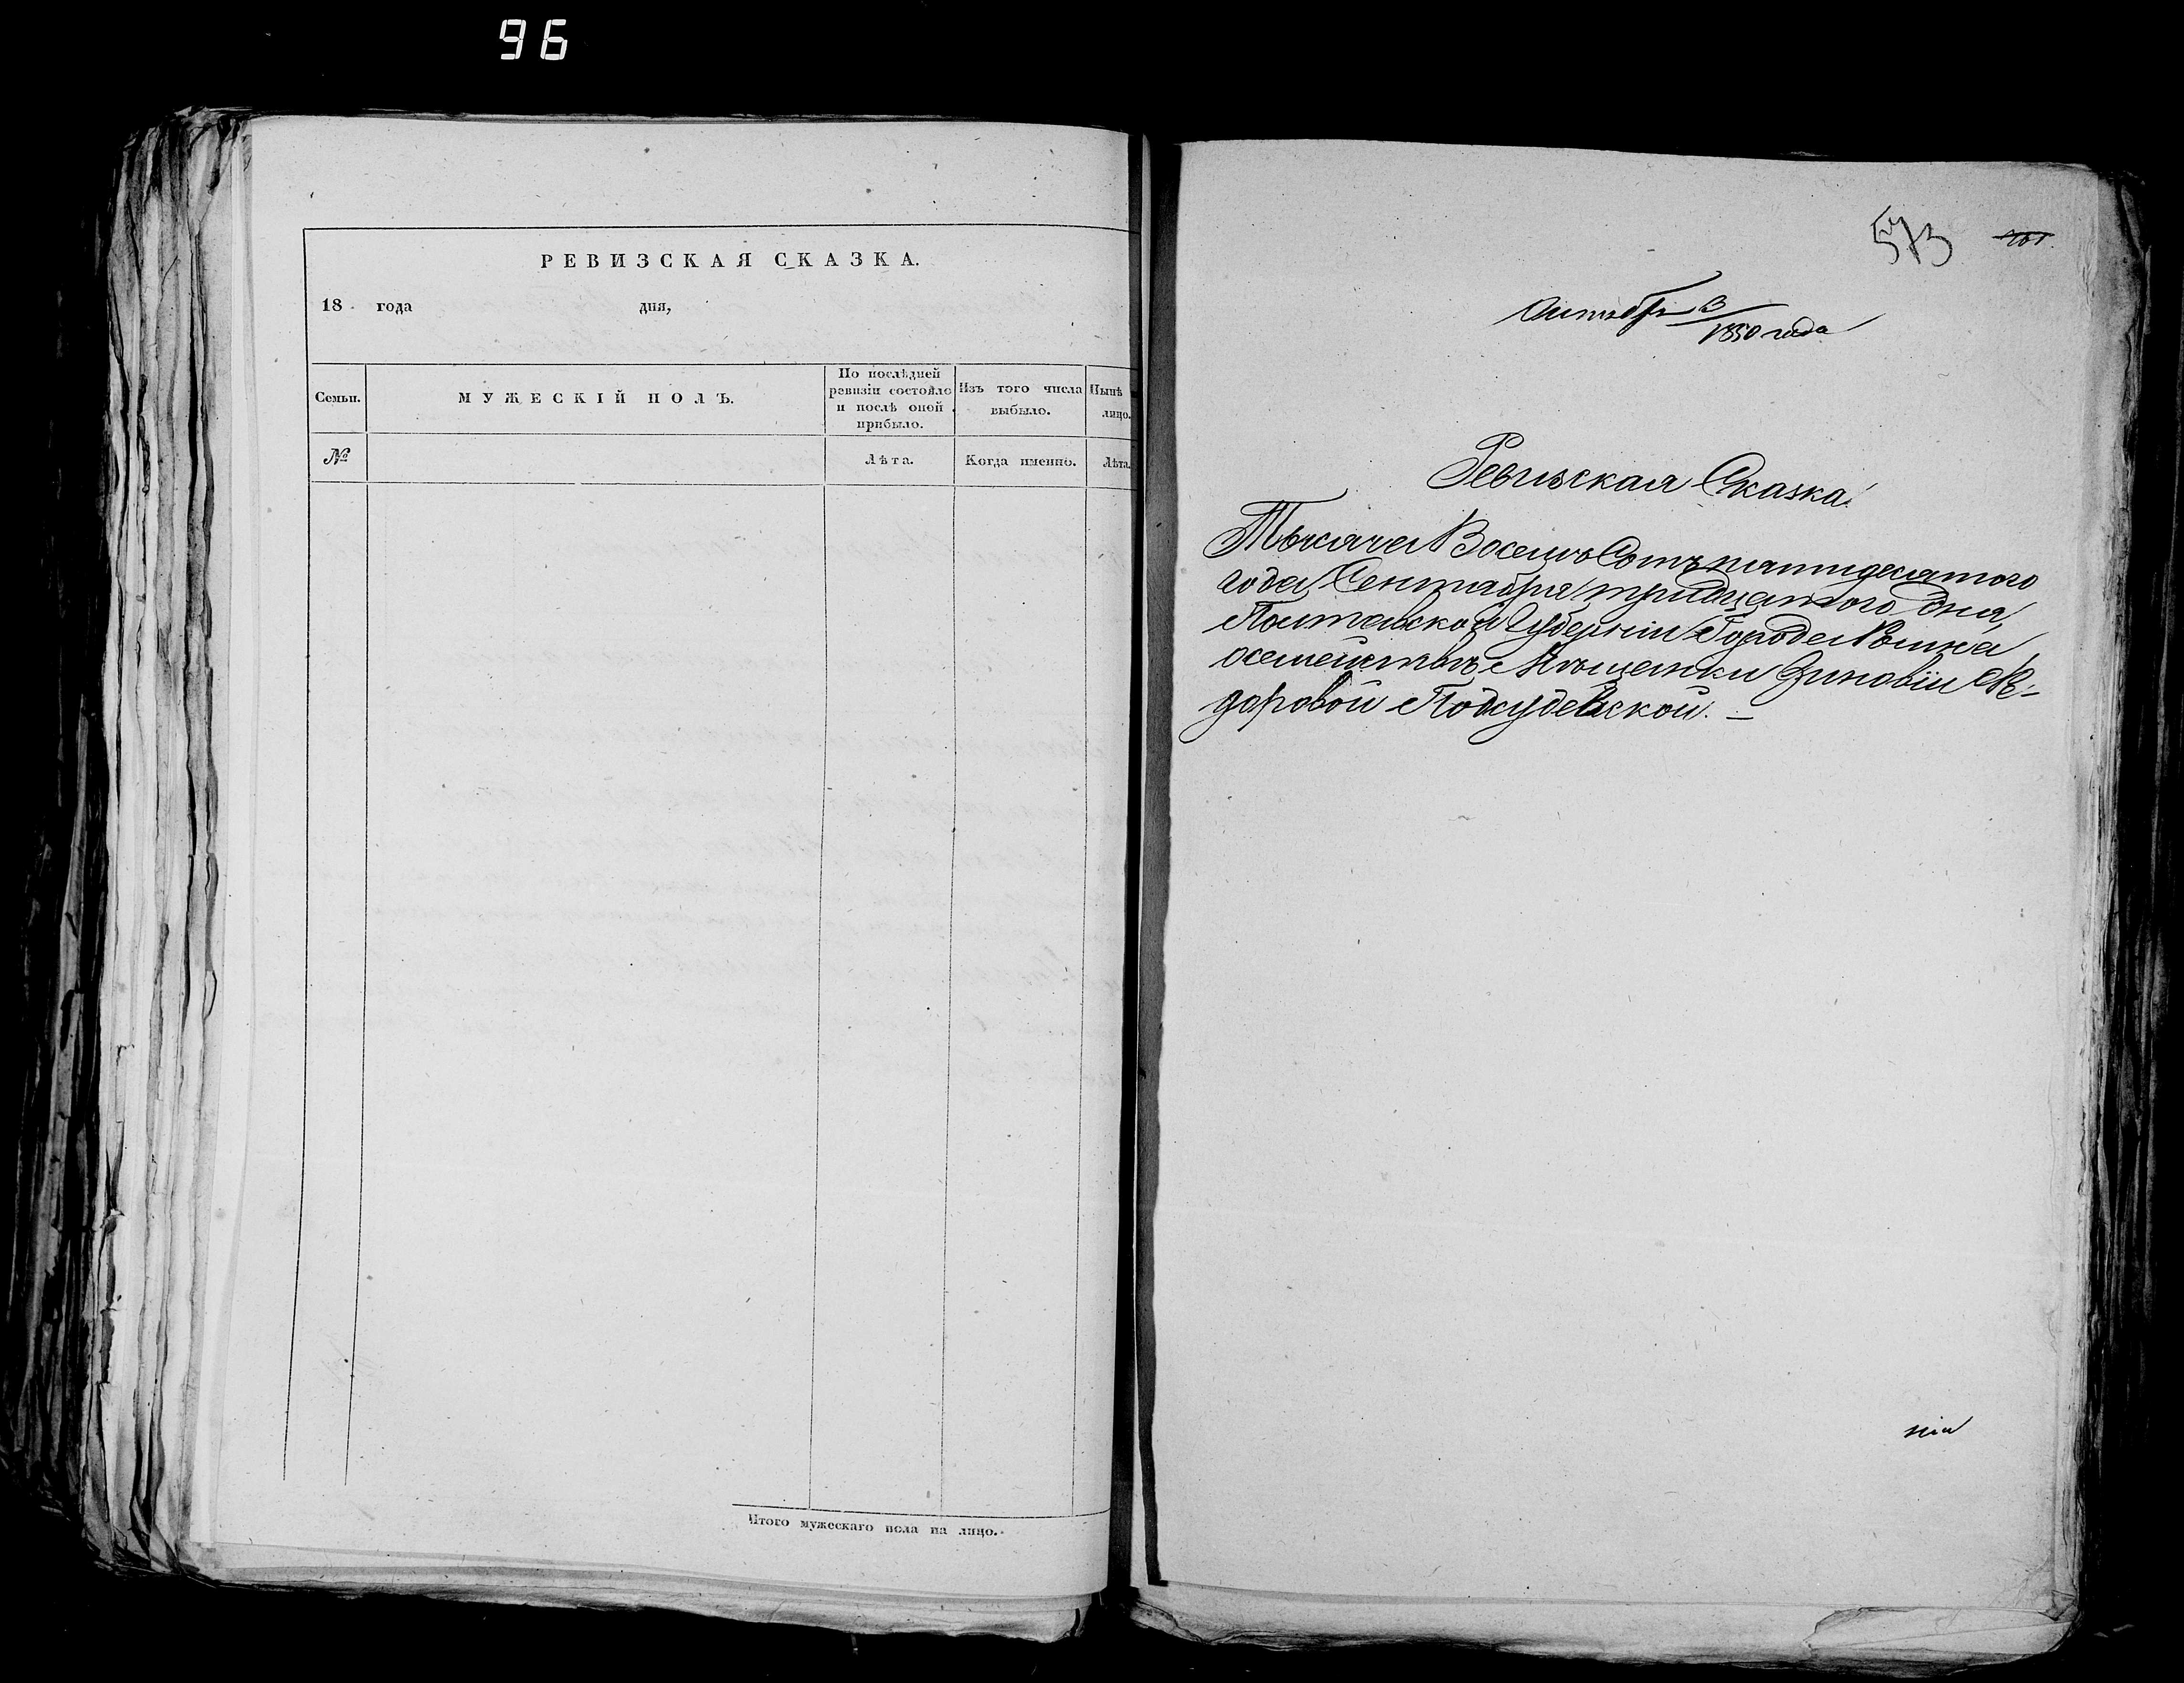 96
РЕВИЗСКАЯ СКАЗКА.
18 года дня,
Семьи.
МУЖЕСКІЙ ПОЛЪ.
По послѣдней
ревизіи состояло
и послѣ оной
прибыло.
Изъ того числа
выбыло.
Нынѣ
лицо.
№
Лѣта.
Когда именно.
Лѣта.
Итого мужескаго пола на лицо.
573
Октября 3
1850 года
Ревизская Сказка
Тысяча Восемь Сотъ пятидесятого
года Сентября тридцатого дня
Полтавской Губерніи Города
осемействѣ Мѣщанки Зиновіи Ѳе-
доровой